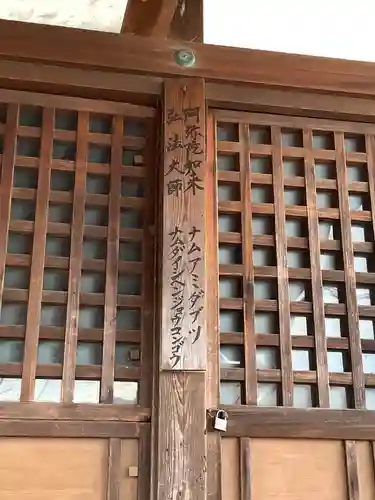 阿弥陀如来　ナムアミダブツ
弘法大師　ナムダイヘンジョウコンゴウ